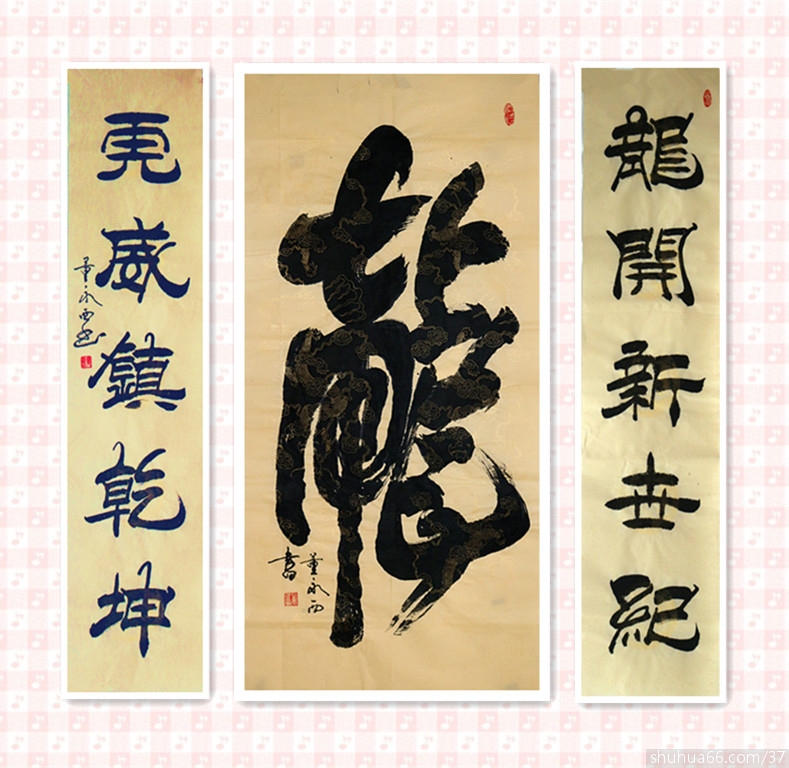 龍開新世紀
龍
董永西
書
虎威鎮乾坤
董永西書
shuhua66.com/37